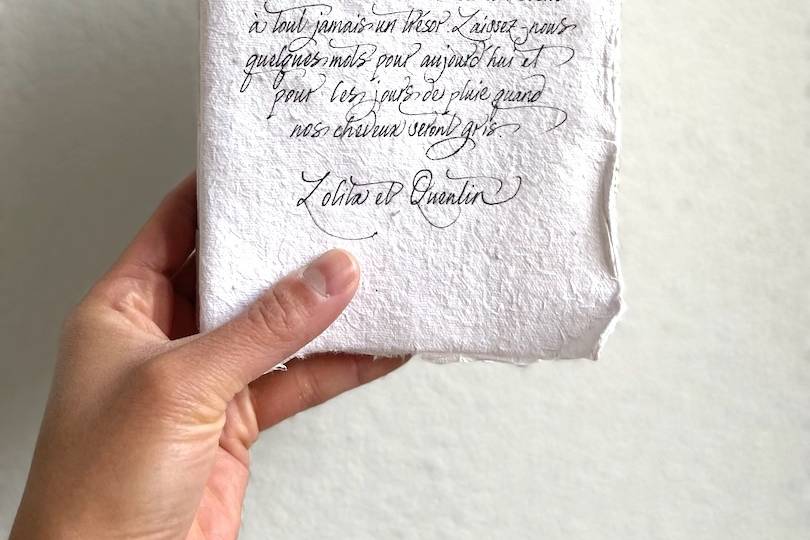 à tout jamais un trésor. Laissez-nous
quelques mots pour aujourd'hui et
pour les jours de pluie quand
nos cheveux seront gris.
Lolita et Quentin